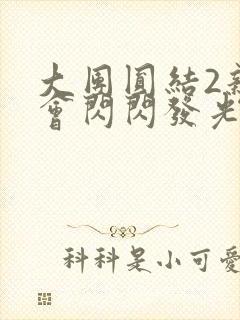 大團圓結2新
會閃閃發光
科科是小可愛